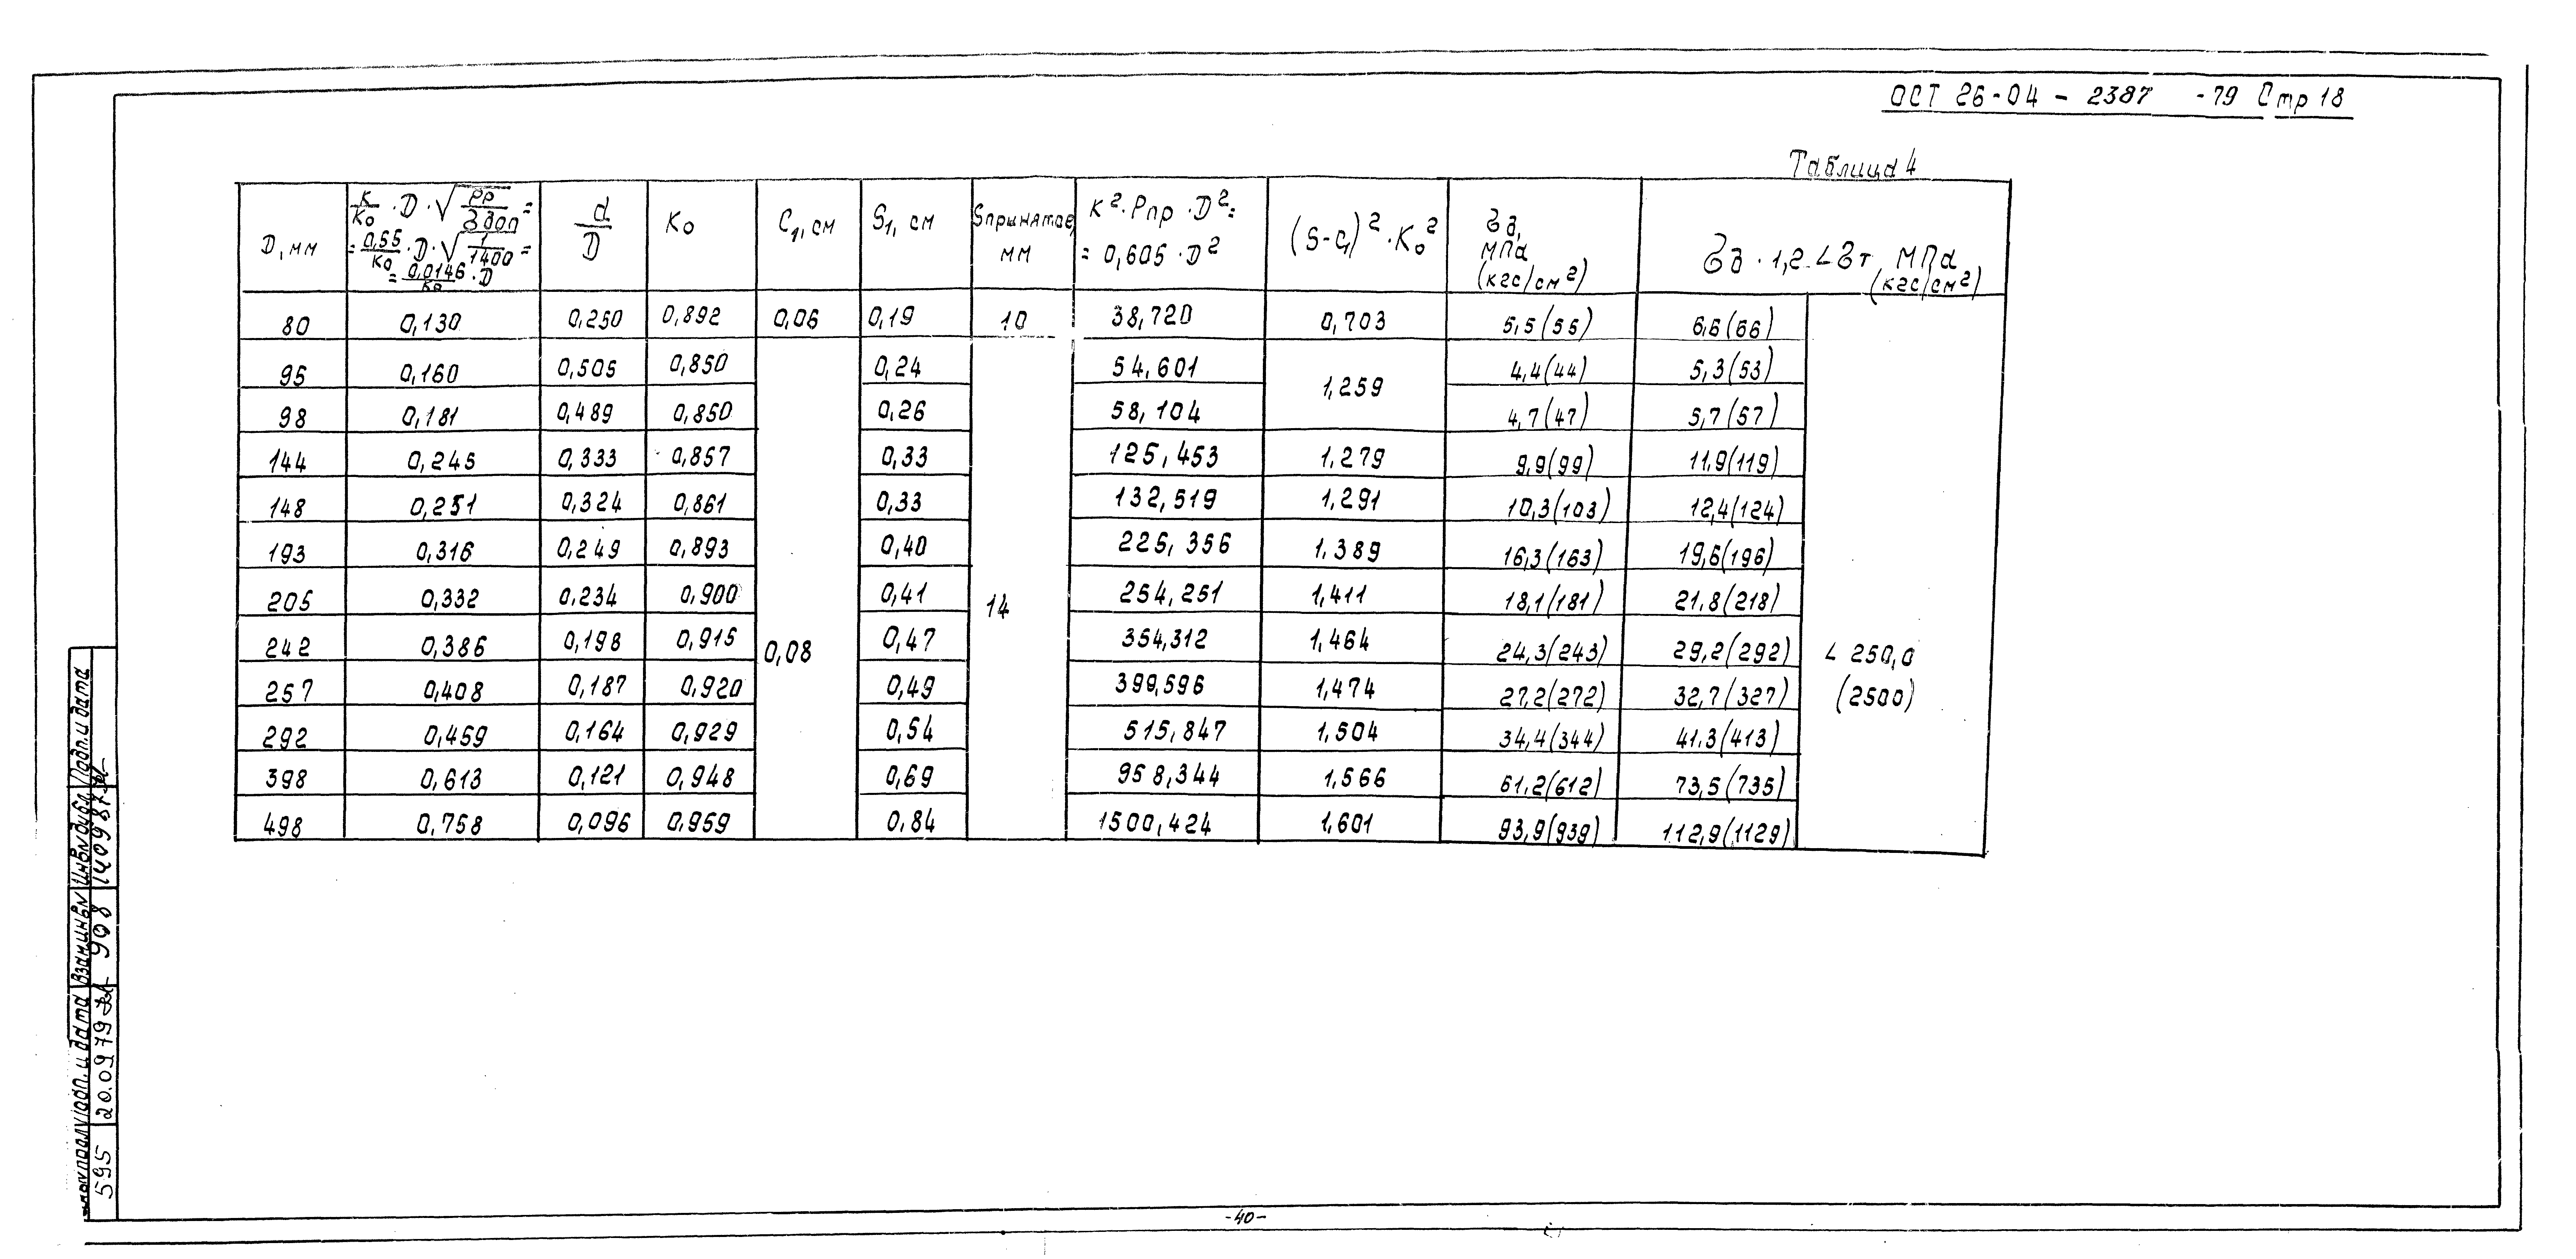 ОСТ 26-04-2387 -79 Стр 18
Таблица 4
D, мм | K/K₀ · D · √(Pp/[σ]доп) = = 0,55/K₀ · D · √(1/1400) = = 0,0146/K₀ · D | d/D | K₀ | C₁, см | S₁, см | Sпринятое, мм | K² · Pпр · D² = = 0,605 · D² | (S-C₁)² · K₀² | σд, МПа (кгс/см²) | σд · 1,2 < σт МПа (кгс/см²)
80 | 0,130 | 0,250 | 0,892 | 0,06 | 0,19 | 10 | 38,720 | 0,703 | 5,5(55) | 6,6(66)
95 | 0,160 | 0,505 | 0,850 | 0,24 | 54,601 | 1,259 | 4,4(44) | 5,3(53)
98 | 0,181 | 0,489 | 0,850 | 0,26 | 58,104 | 4,7(47) | 5,7(57)
144 | 0,245 | 0,333 | 0,857 | 0,33 | 125,453 | 1,279 | 9,9(99) | 11,9(119)
148 | 0,251 | 0,324 | 0,861 | 0,33 | 132,519 | 1,291 | 10,3(103) | 12,4(124)
193 | 0,316 | 0,249 | 0,893 | 0,40 | 225,356 | 1,389 | 16,3(163) | 19,6(196)
205 | 0,332 | 0,234 | 0,900 | 0,41 | 14 | 254,251 | 1,411 | 18,1(181) | 21,8(218)
242 | 0,386 | 0,198 | 0,915 | 0,08 | 0,47 | 354,312 | 1,464 | 24,3(243) | 29,2(292) | < 250,0
257 | 0,408 | 0,187 | 0,920 | 0,49 | 399,596 | 1,474 | 27,2(272) | 32,7(327) | (2500)
292 | 0,459 | 0,164 | 0,929 | 0,54 | 515,847 | 1,504 | 34,4(344) | 41,3(413)
398 | 0,613 | 0,121 | 0,948 | 0,69 | 958,344 | 1,566 | 61,2(612) | 73,5(735)
498 | 0,758 | 0,096 | 0,959 | 0,84 | 1500,424 | 1,601 | 93,9(939) | 112,9(1129)
Подп. и дата
Инв№дубл.
Взам.инв№ 908
Подп. и дата 20.09.79
595
-40-